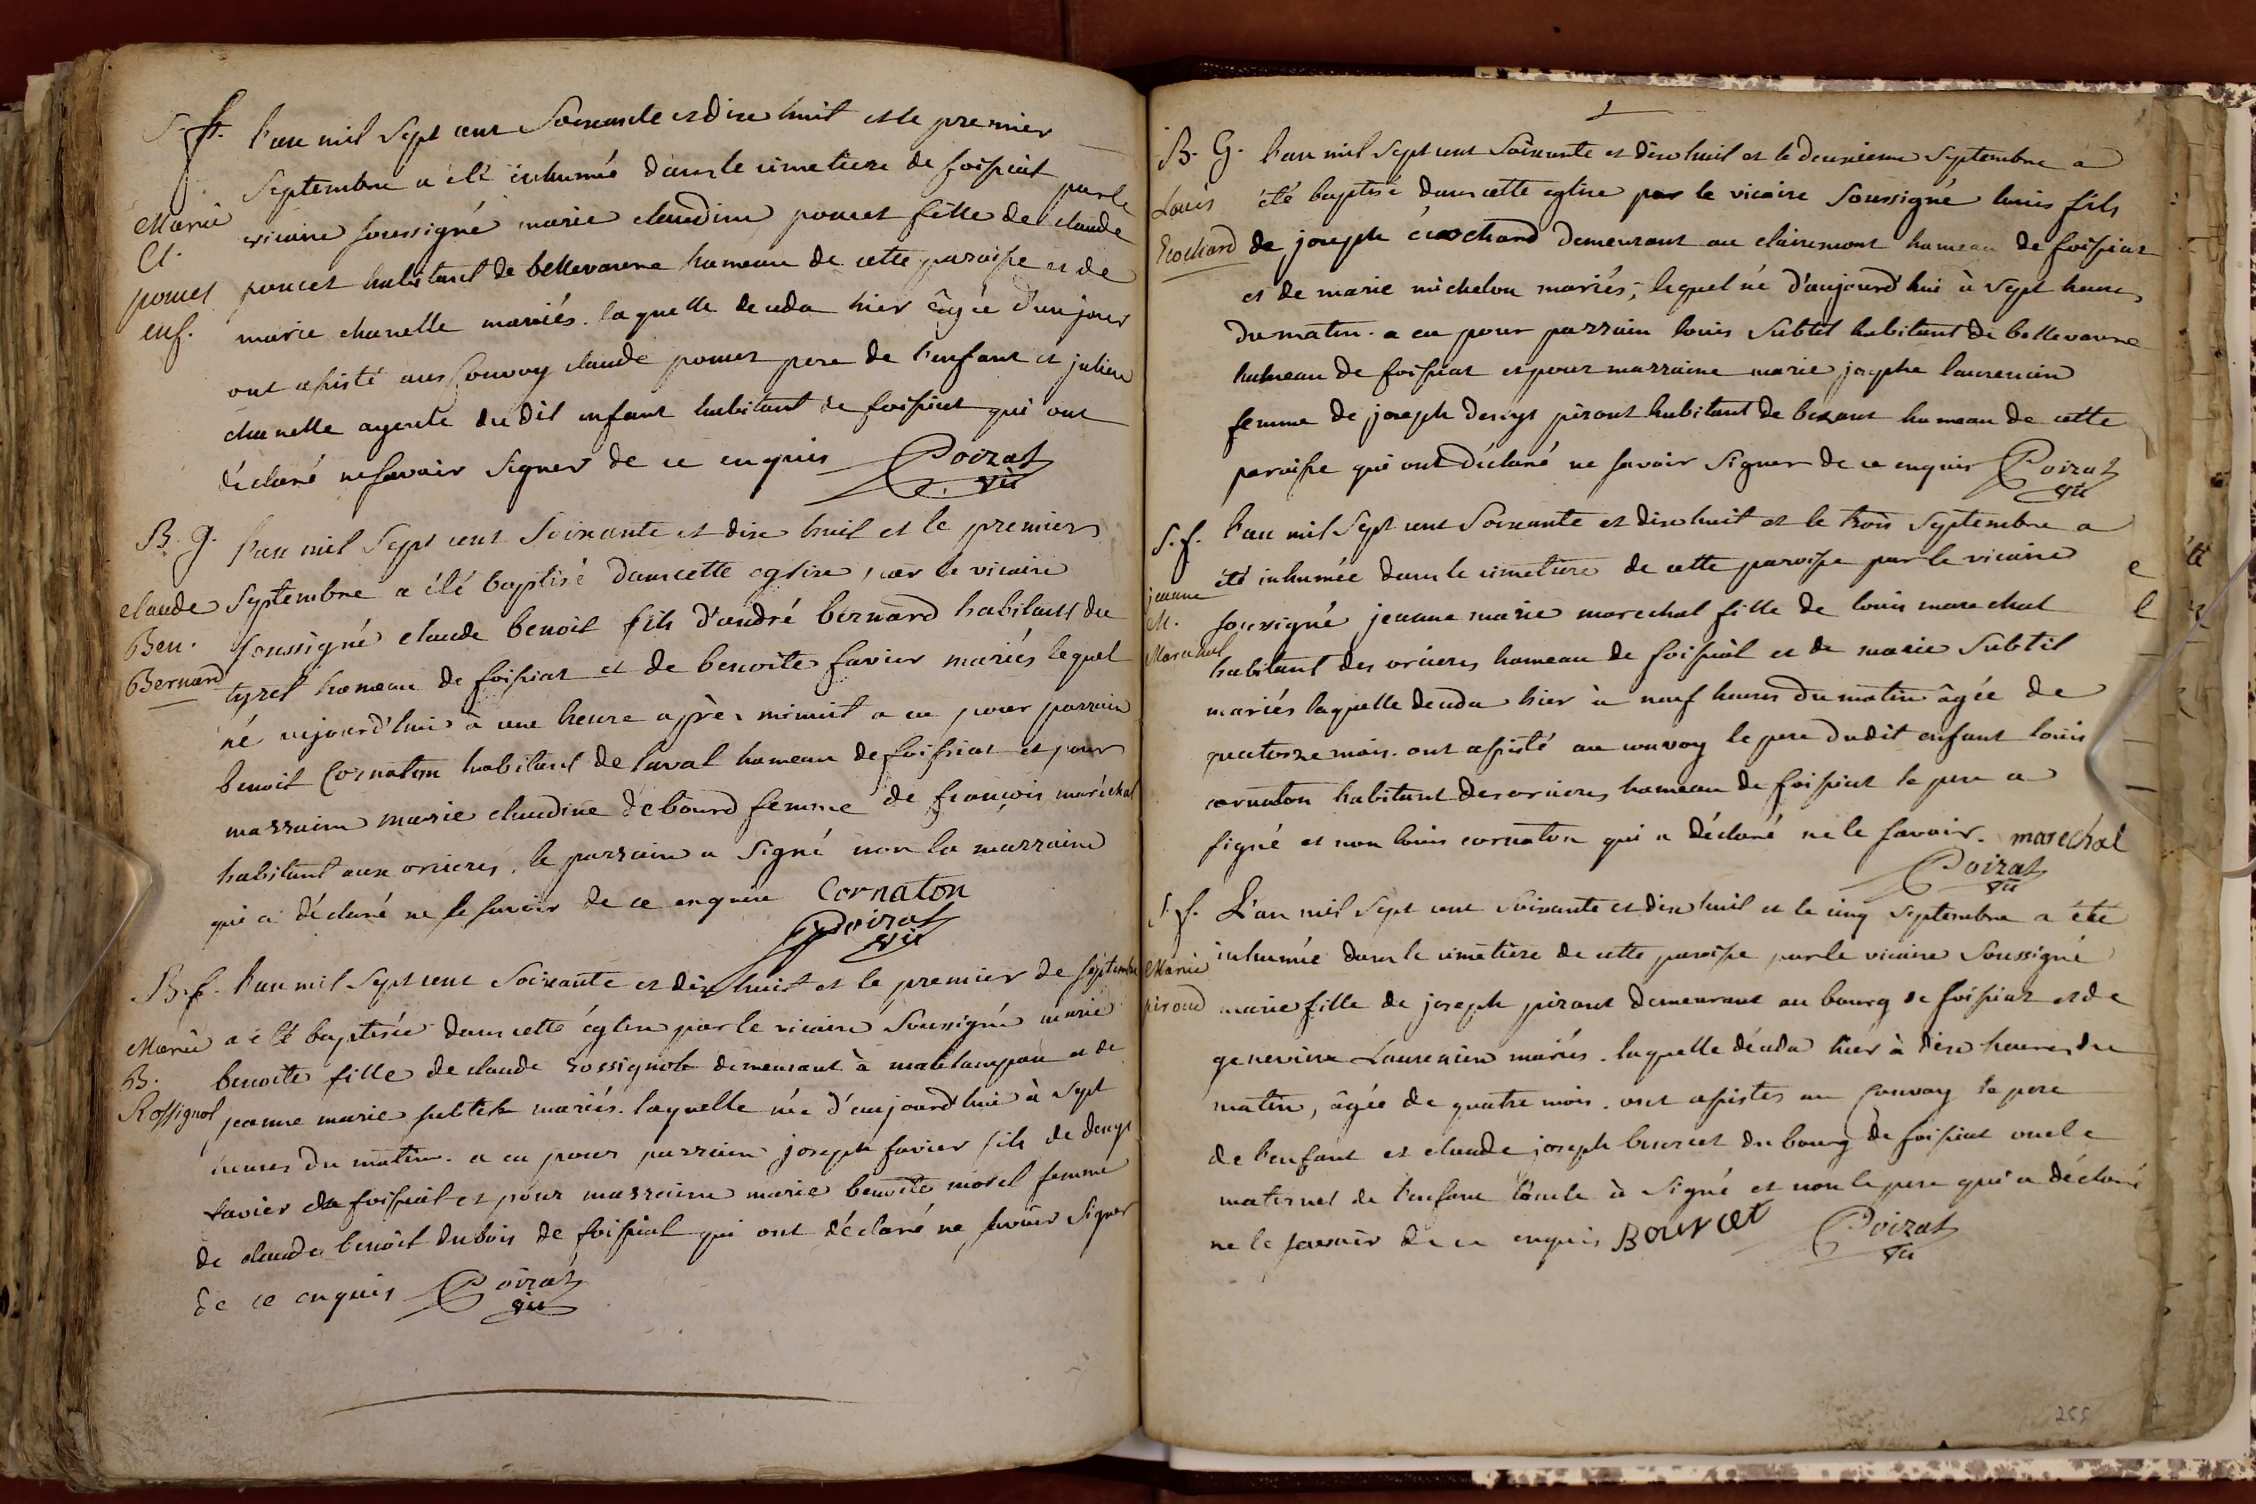 S. f. l'an mil sept cent Soixante et dix huit et le premier
Septembre a été inhumée dans le cimetiere de foissiat par le
Marie vicaire soussigné marie claudine poncet fille de claude
Cl.
poncet poncet habitant de bellevavre hameau de cette paroisse et de
enf. marie chanelle mariés. laquelle deceda hier âgée d'un jour
ont assisté aux Convoy claude poncet pere de l'enfant et julien
chanelle dudit enfant habitant de foissiat qui ont
déclaré ne savoir signer de ce enquis Poizat
vic
B. g. l'an mil sept cent Soixante et dix huit et le premier
claude Septembre a été baptisé dans cette eglise par le vicaire
Ben. soussigné claude benoit fils d'andré bernard habitant du
Bernard tyret hameau de foissiat et de benoite favier mariés lequel
né aujourd'hui à une heure après minuit a eu pour parrain
benoit Cornaton habitant de laval hameau de foissiat et pour
marraine marie claudine debourd femme de françois maréchal
habitant aux orieres. le parrain a signé non la marraine
qui a déclaré ne le savoir de ce enquise Cornaton
Poizat
vic
B. f. l'an mil sept cent Soixante et dix huit et le premier de septembre
Marie a été baptisée dans cette églese par le vicaire Soussigné marie
B. benoite fille de claude rossignol demeurant à et de
Rossignol jeanne marie subtil mariés. laquelle née d'aujourd'hui à sept
heures du matin. a eu pour parrain joseph favier fils de denys
favier de foissiat et pour marraine marie benoite morel femme
de claude benoit dubois de foissiat qui ont déclaré ne savoir signer
de ce enquis Poizat
vic
B. G. l'an mil sept cent Soixante et dix huit et le deuxieme Septembre a
Louis été baptisé dans cette eglise par le vicaire Soussigné louis fils
Erochard de joseph érochard demeurant au clairemont hameau de foissiat
et de marie michelon mariés, lequel né d'aujourd'hui à sept heures
du matin. a eu pour parrain louis Subtil habitant de bellevavre
hameau de foissiat et pour marraine marie josephe laurencin
femme de joseph denys piront habitant de hameau de cette
paroisse qui ont déclaré ne savoir signer de ce enquis Poizat
vic
S. f. l'an mil sept cent Soixante et dix huit et le trois Septembre a
jeanne été inhumée dans le cimetiere de cette paroisse par le vicaire
M. soussigné jeanne marie marechal fille de louis marechal
Marechal habitant des orieres hameau de foissiat et de marie Subtil
mariés laquelle deceda hier à neuf heures du matin âgée de
quatorze mois. ont assisté au convoy le pere dudit enfant louis
cornaton habitant des orieres hameau de foissiat le pere a
signé et non louis cornaton qui a déclaré ne le savoir. marechal
Poizat
vic
S. f. L'an mil sept cent soixante et dix huit et le cinq Septembre a été
Marie inhumée dans le cimetiere de cette paroisse par le vicaire Soussigné
piroud marie fille de joseph piront demeurant au bourg de foissiat et de
genevieve Laurencin mariés. laquelle décéda hier à dix heures du
matin, âgée de quatre mois. ont assistés au Convoy le pere
de l'enfant et claude joseph bourcet du bourg de foissiat oncle
maternel de l'enfant l'oncle à signé et non le pere qui a déclaré
ne le savoir de ce enquis Bourcet Poizat
vic
255